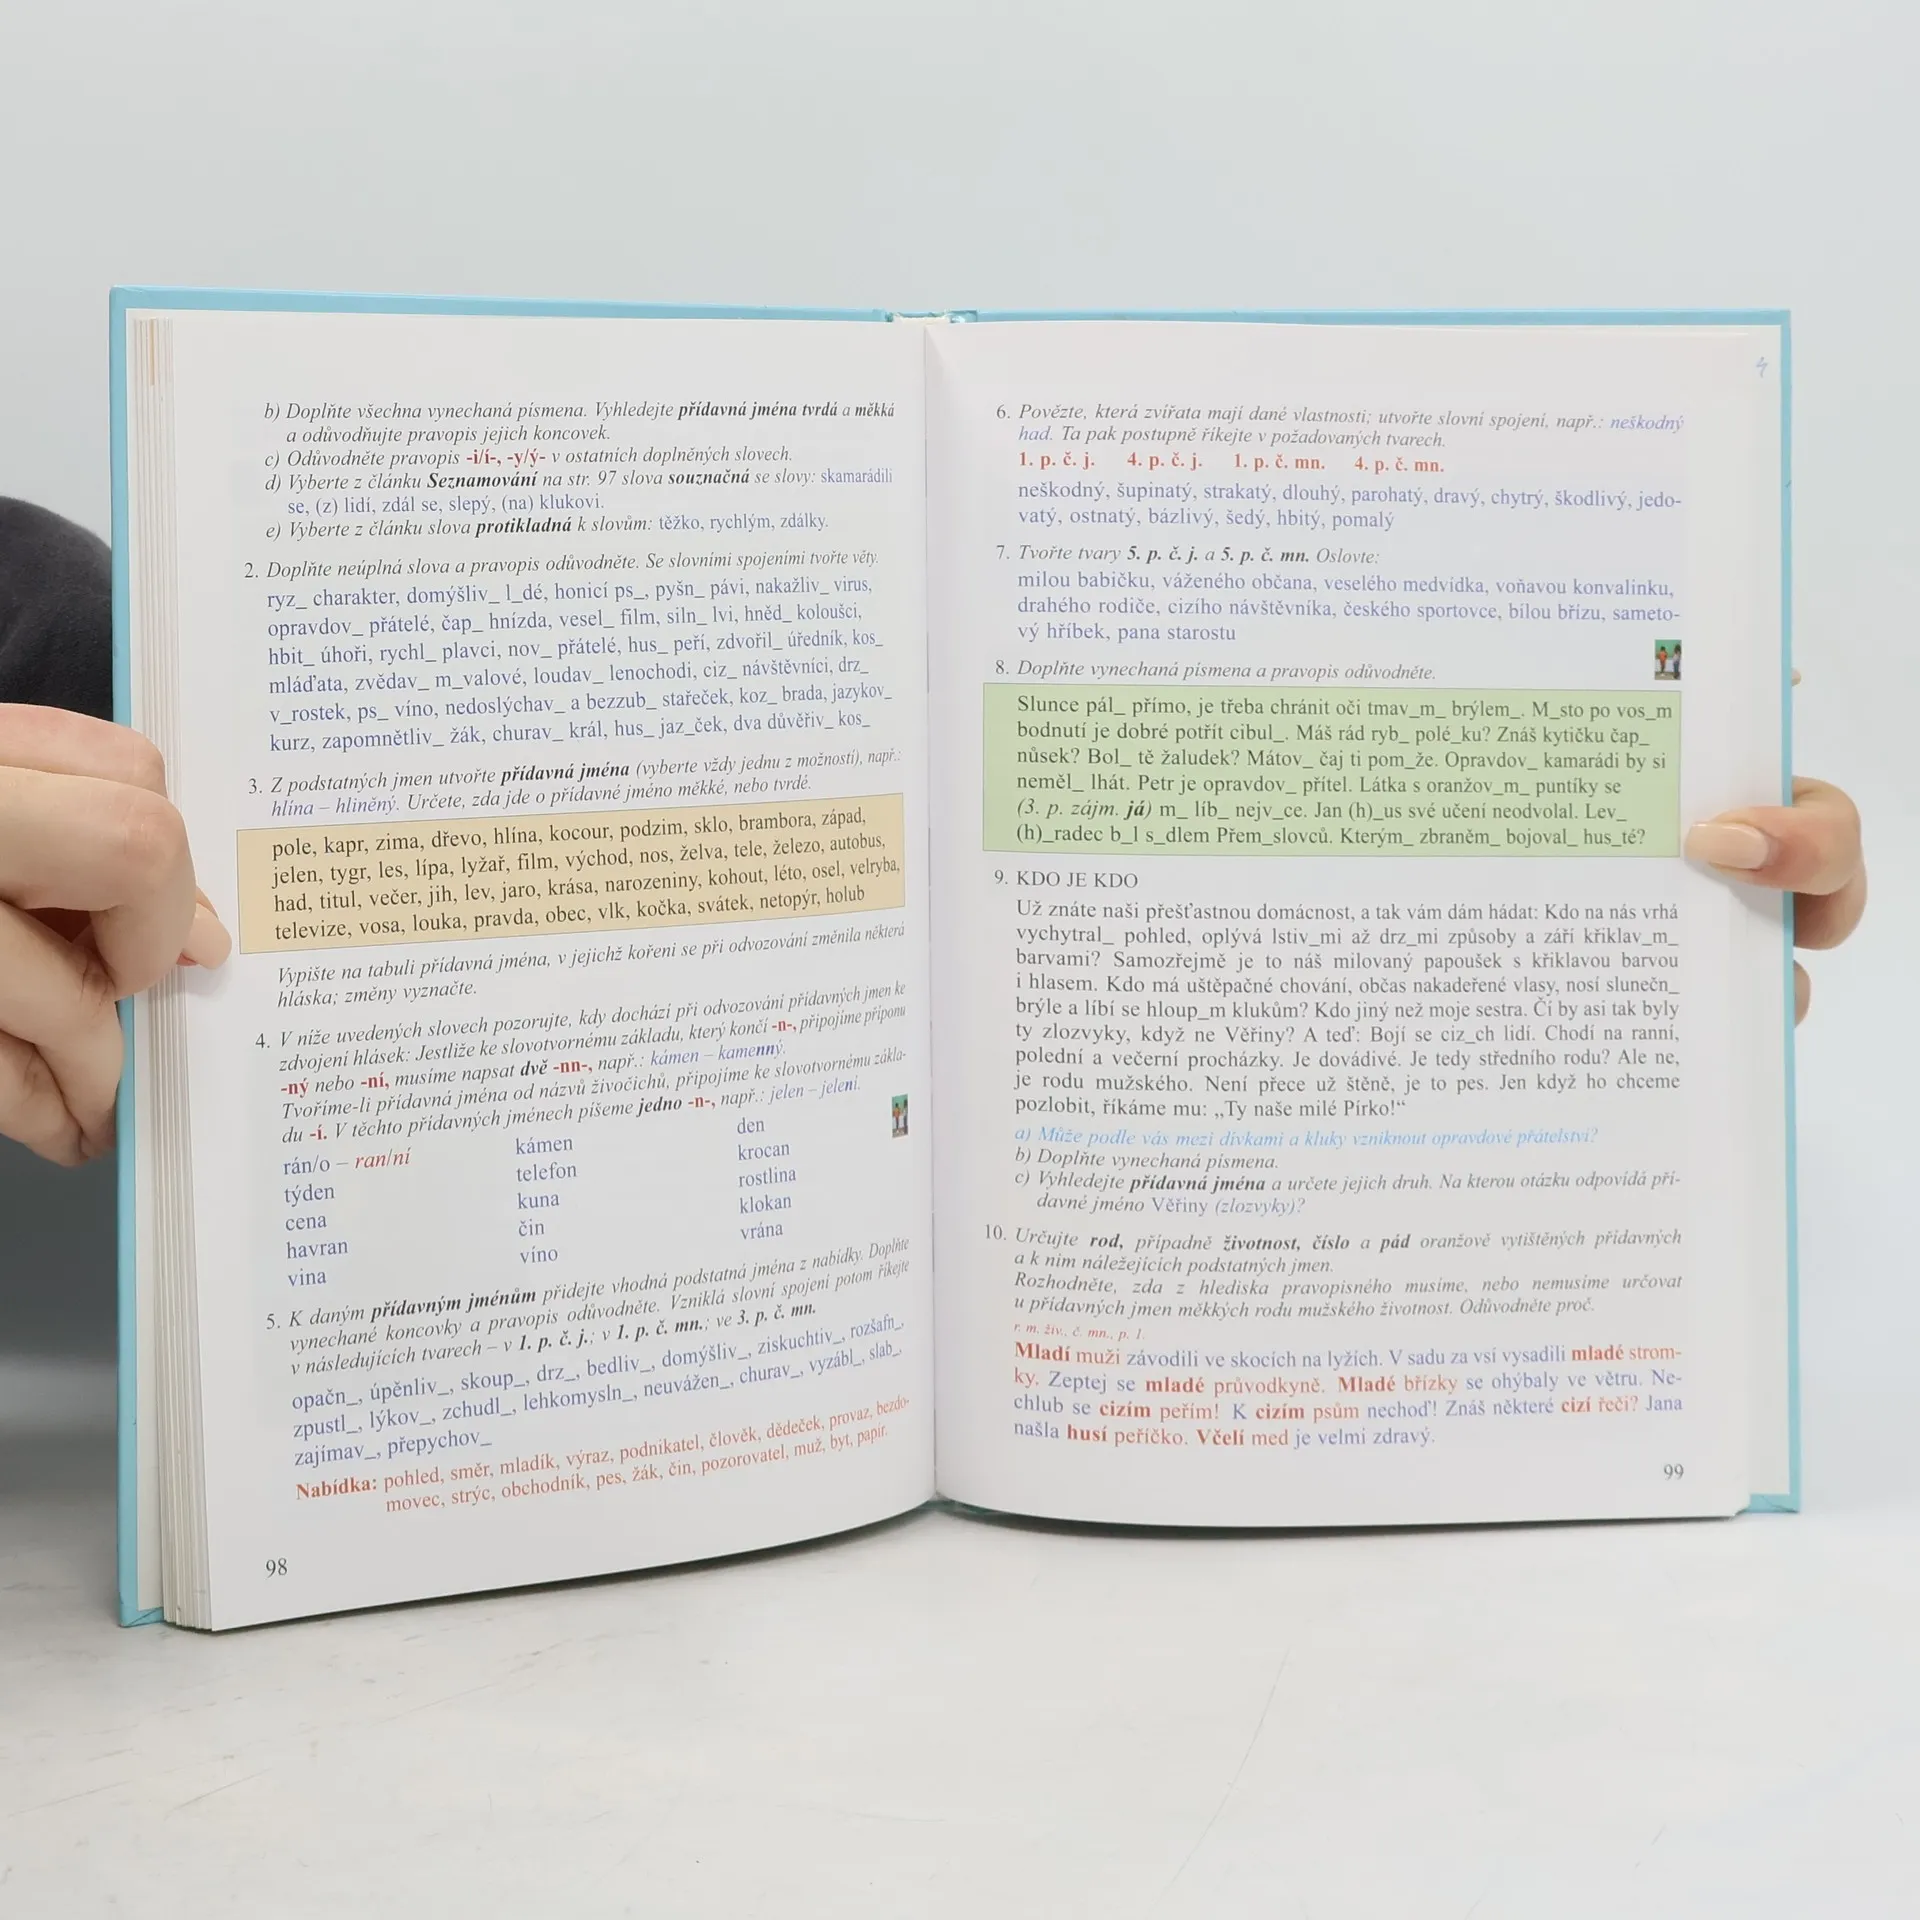 b) Doplňte všechna vynechaná písmena. Vyhledejte přídavná jména tvrdá a měkká
a odůvodňujte pravopis jejich koncovek.
c) Odůvodněte pravopis -i/í-, -y/ý- v ostatních doplněných slovech.
d) Vyberte z článku Seznamování na str. 97 slova souznačná se slovy: skamarádili
se, (z) lidí, zdál se, slepý, (na) klukovi.
e) Vyberte z článku slova protikladná k slovům: těžko, rychlým, zdálky.
2. Doplňte neúplná slova a pravopis odůvodněte. Se slovními spojeními tvořte věty.
ryz_ charakter, domýšliv_ l_dé, honicí ps_, pyšn_ pávi, nakažliv_ virus,
opravdov_ přátelé, čap_ hnízda, vesel_ film, siln_ lvi, hněd_ koloušci,
hbit_ úhoři, rychl_ plavci, nov_ přátelé, hus_ peří, zdvořil_ úředník, kos_
mláďata, zvědav_ m_valové, loudav_ lenochodi, ciz_ návštěvníci, drz_
v_rostek, ps_ víno, nedoslýchav_ a bezzub_ stařeček, koz_ brada, jazykov_
kurz, zapomnětliv_ žák, churav_ král, hus_ jaz_ček, dva důvěřiv_ kos_
3. Z podstatných jmen utvořte přídavná jména (vyberte vždy jednu z možností), např.:
hlína – hliněný. Určete, zda jde o přídavné jméno měkké, nebo tvrdé.
pole, kapr, zima, dřevo, hlína, kocour, podzim, sklo, brambora, západ,
jelen, tygr, les, lípa, lyžař, film, východ, nos, želva, tele, železo, autobus,
had, titul, večer, jih, lev, jaro, krása, narozeniny, kohout, léto, osel, velryba,
televize, vosa, louka, pravda, obec, vlk, kočka, svátek, netopýr, holub
Vypište na tabuli přídavná jména, v jejichž kořeni se při odvozování změnila některá
hláska; změny vyznačte.
4. V níže uvedených slovech pozorujte, kdy dochází při odvozování přídavných jmen ke
zdvojení hlásek: Jestliže ke slovotvornému základu, který končí -n-, připojíme příponu
-ný nebo -ní, musíme napsat dvě -nn-, např.: kámen – kamenný.
Tvoříme-li přídavná jména od názvů živočichů, připojíme ke slovotvornému zákla-
du -í. V těchto přídavných jménech píšeme jedno -n-, např.: jelen – jelení.
rán/o – ran/ní
týden
cena
havran
vina
kámen
telefon
kuna
čin
víno
den
krocan
rostlina
klokan
vrána
5. K daným přídavným jménům přidejte vhodná podstatná jména z nabídky. Doplňte
vynechané koncovky a pravopis odůvodněte. Vzniklá slovní spojení potom říkejte
v následujících tvarech – v 1. p. č. j.; v 1. p. č. mn.; ve 3. p. č. mn.
opačn_, úpěnliv_, skoup_, drz_, bedliv_, domýšliv_, ziskuchtiv_, rozšafn_,
zpustl_, lýkov_, zchudl_, lehkomysln_, neuvážen_, churav_, vyzábl_, slab_,
zajímav_, přepychov_
Nabídka: pohled, směr, mladík, výraz, podnikatel, člověk, dědeček, provaz, bezdo-
movec, strýc, obchodník, pes, žák, čin, pozorovatel, muž, byt, papír.
98
4
6. Povězte, která zvířata mají dané vlastnosti; utvořte slovní spojení, např.: neškodný
had. Ta pak postupně říkejte v požadovaných tvarech.
1. p. č. j. 4. p. č. j. 1. p. č. mn. 4. p. č. mn.
neškodný, šupinatý, strakatý, dlouhý, parohatý, dravý, chytrý, škodlivý, jedo-
vatý, ostnatý, bázlivý, šedý, hbitý, pomalý
7. Tvořte tvary 5. p. č. j. a 5. p. č. mn. Oslovte:
milou babičku, váženého občana, veselého medvídka, voňavou konvalinku,
drahého rodiče, cizího návštěvníka, českého sportovce, bílou břízu, sameto-
vý hříbek, pana starostu
8. Doplňte vynechaná písmena a pravopis odůvodněte.
Slunce pál_ přímo, je třeba chránit oči tmav_m_ brýlem_. M_sto po vos_m
bodnutí je dobré potřít cibul_. Máš rád ryb_ polé_ku? Znáš kytičku čap_
nůsek? Bol_ tě žaludek? Mátov_ čaj ti pom_že. Opravdov_ kamarádi by si
neměl_ lhát. Petr je opravdov_ přítel. Látka s oranžov_m_ puntíky se
(3. p. zájm. já) m_ líb_ nejv_ce. Jan (h)_us své učení neodvolal. Lev_
(h)_radec b_l s_dlem Přem_slovců. Kterým_ zbraněm_ bojoval_ hus_té?
9. KDO JE KDO
Už znáte naši přešťastnou domácnost, a tak vám dám hádat: Kdo na nás vrhá
vychytral_ pohled, oplývá lstiv_mi až drz_mi způsoby a září křiklav_m_
barvami? Samozřejmě je to náš milovaný papoušek s křiklavou barvou
i hlasem. Kdo má uštěpačné chování, občas nakadeřené vlasy, nosí slunečn_
brýle a líbí se hloup_m klukům? Kdo jiný než moje sestra. Čí by asi tak byly
ty zlozvyky, když ne Věřiny? A teď: Bojí se ciz_ch lidí. Chodí na ranní,
polední a večerní procházky. Je dovádivé. Je tedy středního rodu? Ale ne,
je rodu mužského. Není přece už štěně, je to pes. Jen když ho chceme
pozlobit, říkáme mu: „Ty naše milé Pírko!“
a) Může podle vás mezi dívkami a kluky vzniknout opravdové přátelství?
b) Doplňte vynechaná písmena.
c) Vyhledejte přídavná jména a určete jejich druh. Na kterou otázku odpovídá pří-
davné jméno Věřiny (zlozvyky)?
10. Určujte rod, případně životnost, číslo a pád oranžově vytištěných přídavných
a k nim náležejících podstatných jmen.
Rozhodněte, zda z hlediska pravopisného musíme, nebo nemusíme určovat
u přídavných jmen měkkých rodu mužského životnost. Odůvodněte proč.
r. m. živ., č. mn., p. 1.
Mladí muži závodili ve skocích na lyžích. V sadu za vsí vysadili mladé strom-
ky. Zeptej se mladé průvodkyně. Mladé břízky se ohýbaly ve větru. Ne-
chlub se cizím peřím! K cizím psům nechoď! Znáš některé cizí řeči? Jana
našla husí peříčko. Včelí med je velmi zdravý.
99